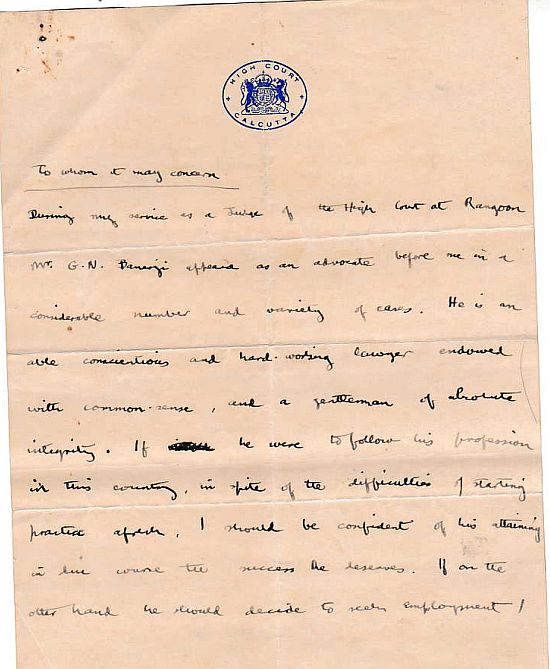 HIGH COURT
CALCUTTA
To whom it may concern
During my service as a Judge of the High Court at Rangoon
Mr. G.N. Banerji appeared as an advocate before me in a
considerable number and variety of cases. He is an
able conscientious and hard-working lawyer endowed
with common-sense, and a gentleman of absolute
integrity. If he were to follow his profession
in this country, in spite of the difficulties of starting
practice afresh, I should be confident of his attaining
in due course the success he deserves. If on the
other hand he should decide to seek employment I